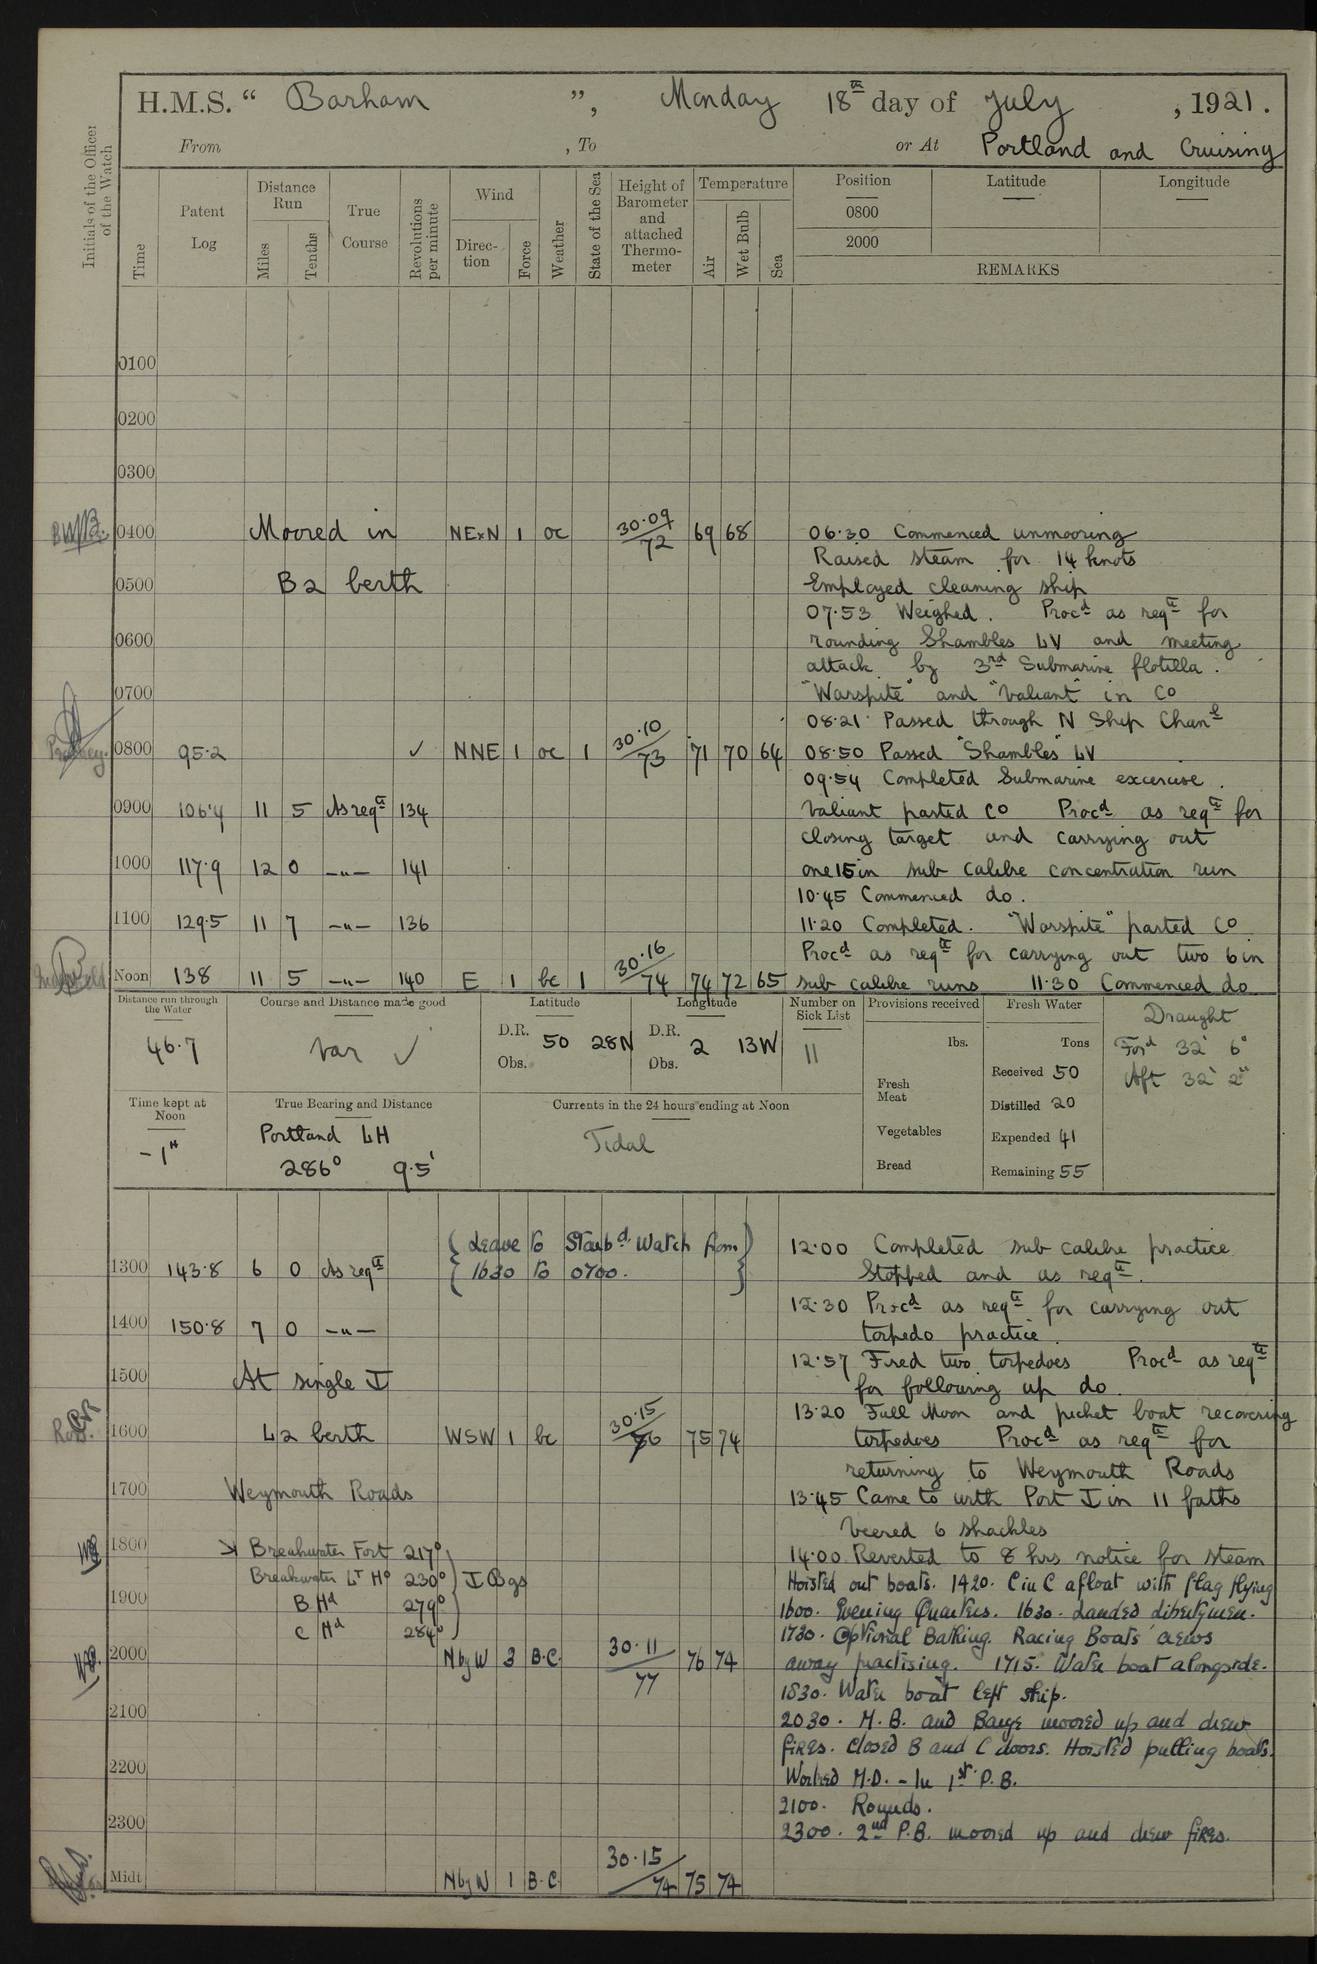 H.M.S. " Barham ", Monday 18th day of July, 1921.
From , To or At Portland and Cruising
Initials of the Officer of the Watch
Time
Patent Log
Distance Run
Miles
Tenths
True Course
Revolutions per minute
Wind
Direc-tion
Force
Weather
State of the Sea
Height of Barometer and attached Thermo-meter
Temperature
Air
Wet Bulb
Sea
Position
Latitude
Longitude
0800
2000
REMARKS
0100
0200
0300
0400 Moored in NExN 1 oc 30.09/72 69 68
0500 B2 berth
0600
0700
0800 95.2 ✓ NNE 1 oc 1 30.10/73 71 70 64
0900 106.4 11 5 As reqte 134
1000 117.9 12 0 —"— 141
1100 129.5 11 7 —"— 136
Noon 138 11 5 —"— 140 E 1 bc 1 30.16/74 74 72 65
06.30 Commenced unmooring
Raised steam for 14 knots
Employed cleaning ship
07.53 Weighed. Procd as reqte for
rounding Shambles LV and meeting
attack by 3rd Submarine flotilla.
"Warspite" and "Valiant" in Co
08.21 Passed through N Ship Chanl
08.50 Passed "Shambles" LV
09.54 Completed Submarine excercise.
Valiant parted Co Procd as reqte for
closing target and carrying out
one 15 in sub calibre concentration run
10.45 Commenced do.
11.20 Completed. "Warspite" parted Co
Procd as reqte for carrying out two 6 in
sub calibre runs 11.30 Commenced do
Distance run through the Water
46.7
Course and Distance made good
Var ✓
Latitude
D.R. 50 28N
Obs.
Longitude
D.R. 2 13W
Obs.
Number on Sick List
11
Provisions received
lbs.
Fresh Meat
Vegetables
Bread
Fresh Water
Tons
Received 50
Distilled 20
Expended 41
Remaining 55
Draught
Ford 32' 6"
Aft 32' 2"
Time kept at Noon
-1H
True Bearing and Distance
Portland LH
286° 9.5'
Currents in the 24 hours ending at Noon
Tidal
(Leave to Starbd Watch from
1630 to 0700.)
1300 143.8 6 0 As reqte
1400 150.8 7 0 —"—
1500 At single
1600 L2 berth WSW 1 bc 30.15/76 75 74
1700 Weymouth Roads
1800 Breakwater Fort 217°
Breakwater Lt Ho 230° Bgs
1900 B Hd 279°
C Hd 284°
2000 NbyW 3 B.C. 30.11/77 76 74
2100
2200
2300
Midt NbyN 1 B.C. 30.15/74 75 74
12.00 Completed sub calibre practice
Stopped and as reqte.
12.30 Procd as reqte for carrying out
torpedo practice.
12.57 Fired two torpedoes Procd as reqte
for following up do.
13.20 Full Moon and picket boat recovering
torpedoes Procd as reqte for
returning to Weymouth Roads
13.45 Came to with Port in 11 faths
veered 6 shackles
14.00 Reverted to 8 hrs notice for steam
Hoisted out boats. 1420. C in C afloat with flag flying
1600. Evening Quarters. 1630. Landed libertymen.
1730. Optional Bathing. Racing Boats' crews
away practising. 1715. Water boat alongside.
1830. Water boat left ship.
2030. M.B. and Barge moored up and drew
fires. Closed B and C doors. Hoisted pulling boats.
Worked M.D. - In 1st P.B.
2100. Rounds.
2300. 2nd P.B. moored up and drew fires.